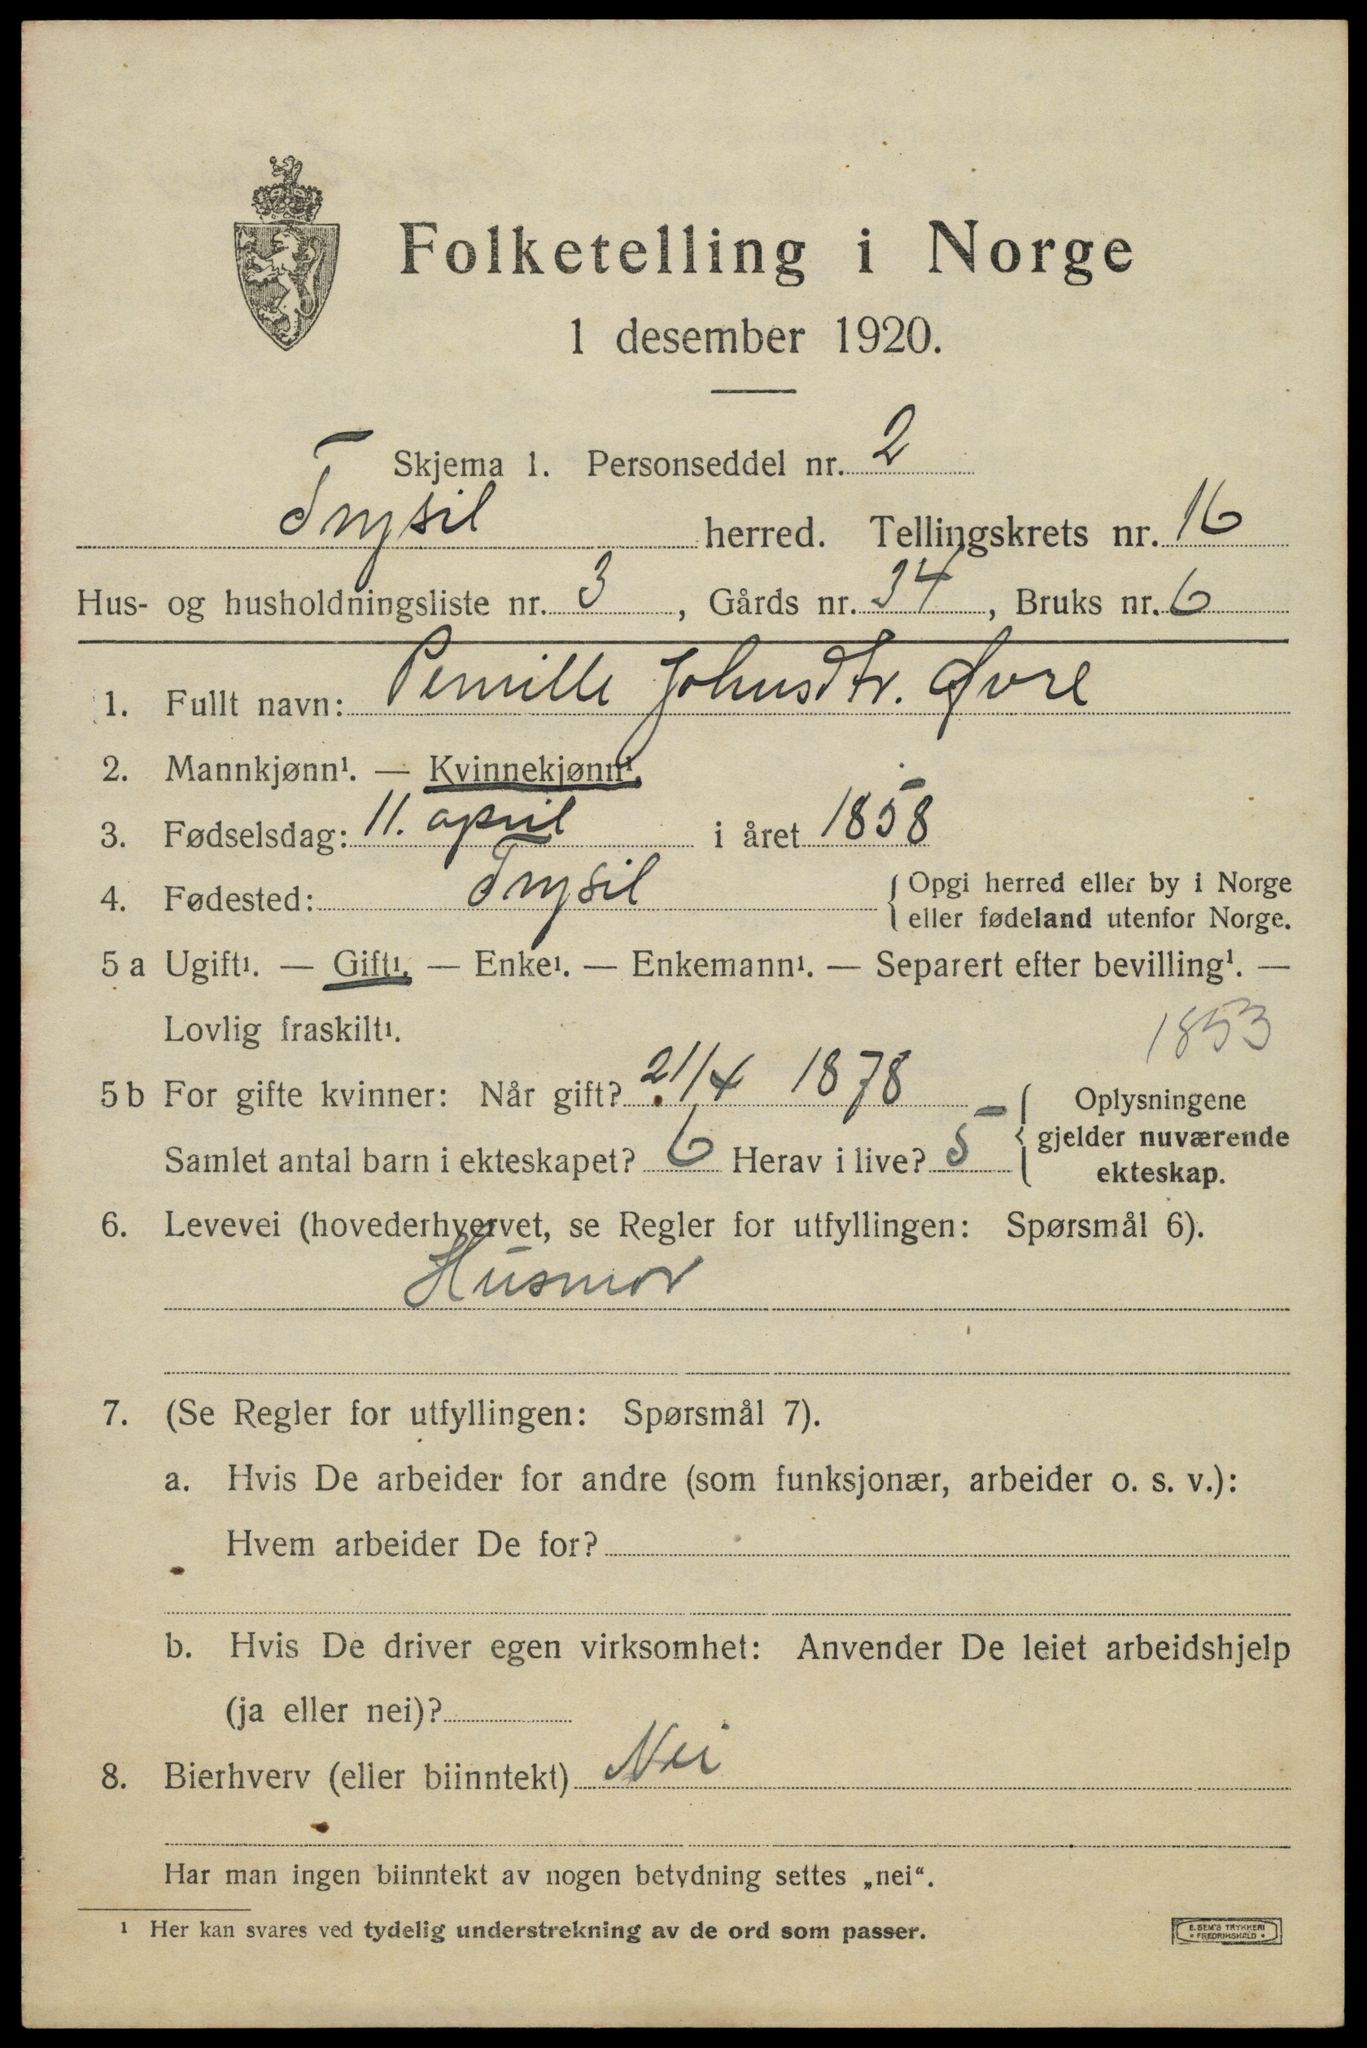 Folketelling i Norge
1 desember 1920.
Skjema 1. Personseddel nr. 2
Trysil herred. Tellingskrets nr. 16
Hus- og husholdningsliste nr. 3, Gårds nr. 34, Bruks nr. 6
1. Fullt navn: Pernille Johnsdtr. Øvre
2. Mannkjønn¹. — Kvinnekjønn¹.
3. Fødselsdag: 11. april i året 1858
4. Fødested: Trysil { Opgi herred eller by i Norge
eller fødeland utenfor Norge.
5 a Ugift¹. — Gift¹. — Enke¹. — Enkemann¹. — Separert efter bevilling¹. —
Lovlig fraskilt¹.
1853
5 b For gifte kvinner: Når gift? 21/4 1878
Samlet antal barn i ekteskapet? 6 Herav i live? 5
{ Oplysningene
gjelder nuværende
ekteskap.
6. Levevei (hovederhvervet, se Regler for utfyllingen: Spørsmål 6).
Husmor
7. (Se Regler for utfyllingen: Spørsmål 7).
a. Hvis De arbeider for andre (som funksjonær, arbeider o. s. v.):
Hvem arbeider De for?
b. Hvis De driver egen virksomhet: Anvender De leiet arbeidshjelp
(ja eller nei)?
8. Bierhverv (eller biinntekt) Nei
Har man ingen biinntekt av nogen betydning settes „nei“.
¹ Her kan svares ved tydelig understrekning av de ord som passer.
E. SEM'S TRYKKERI
• FREDRIKSHALD •